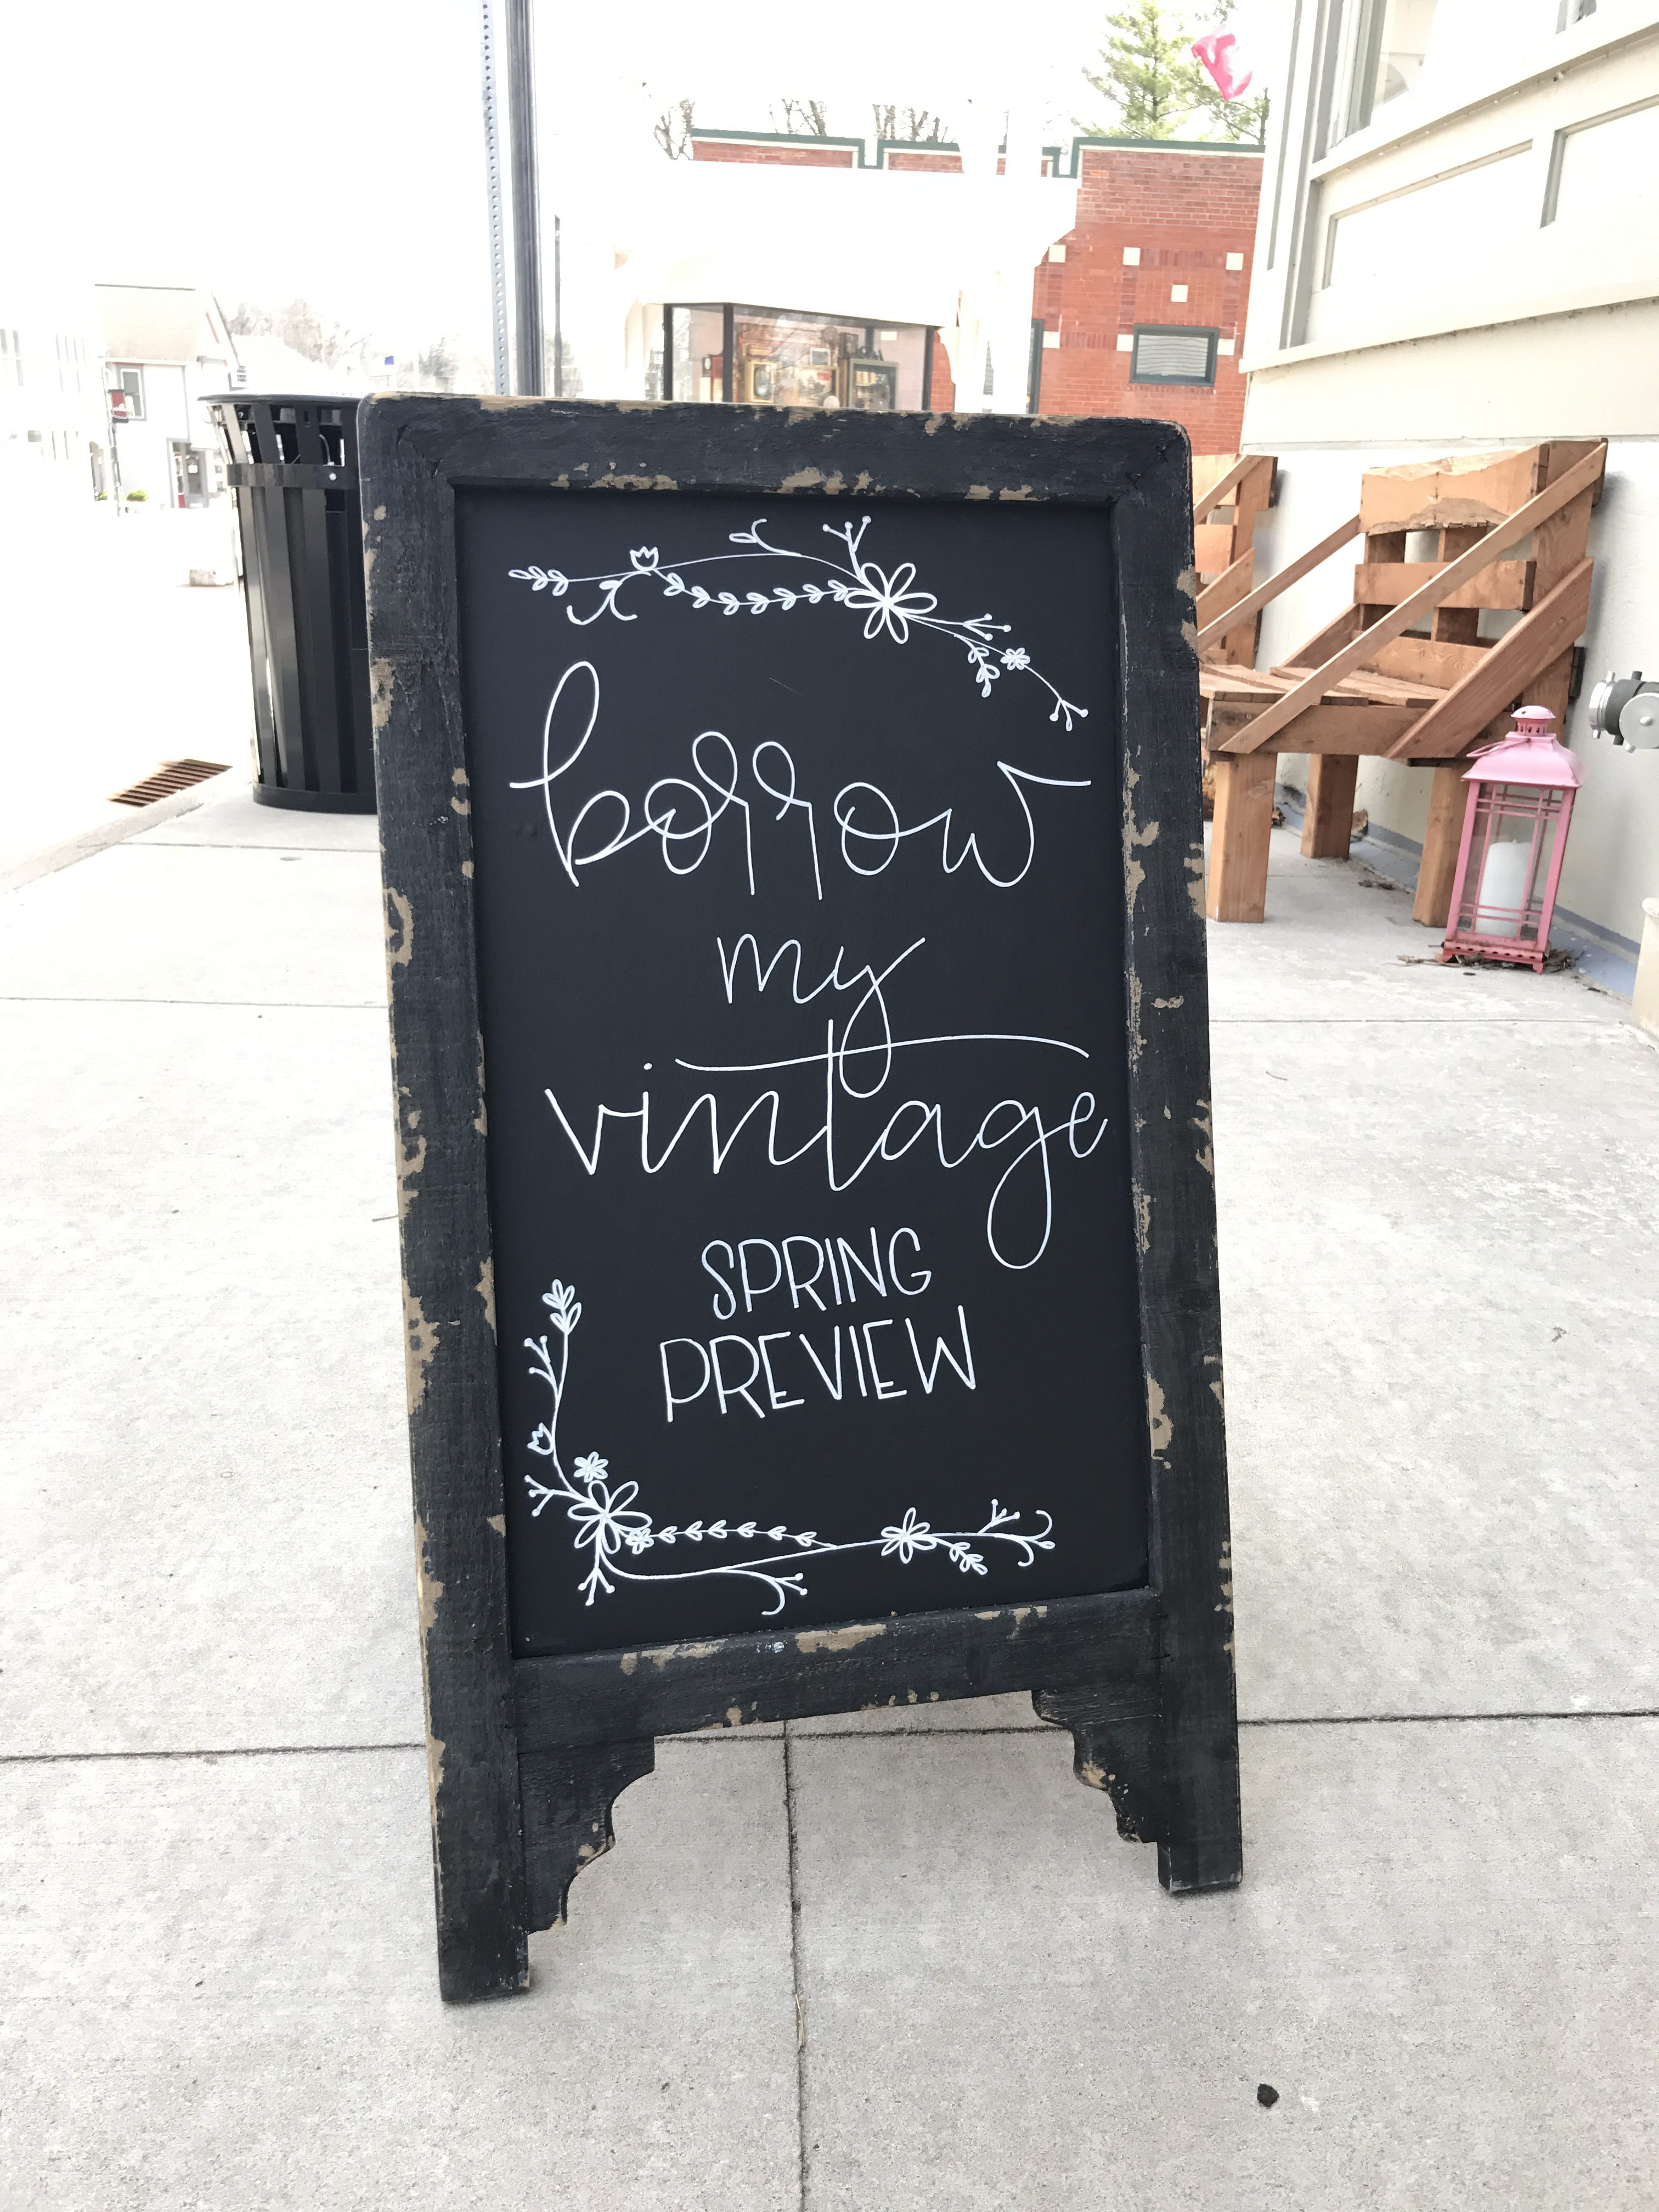 borrow
my
vintage
SPRING
PREVIEW